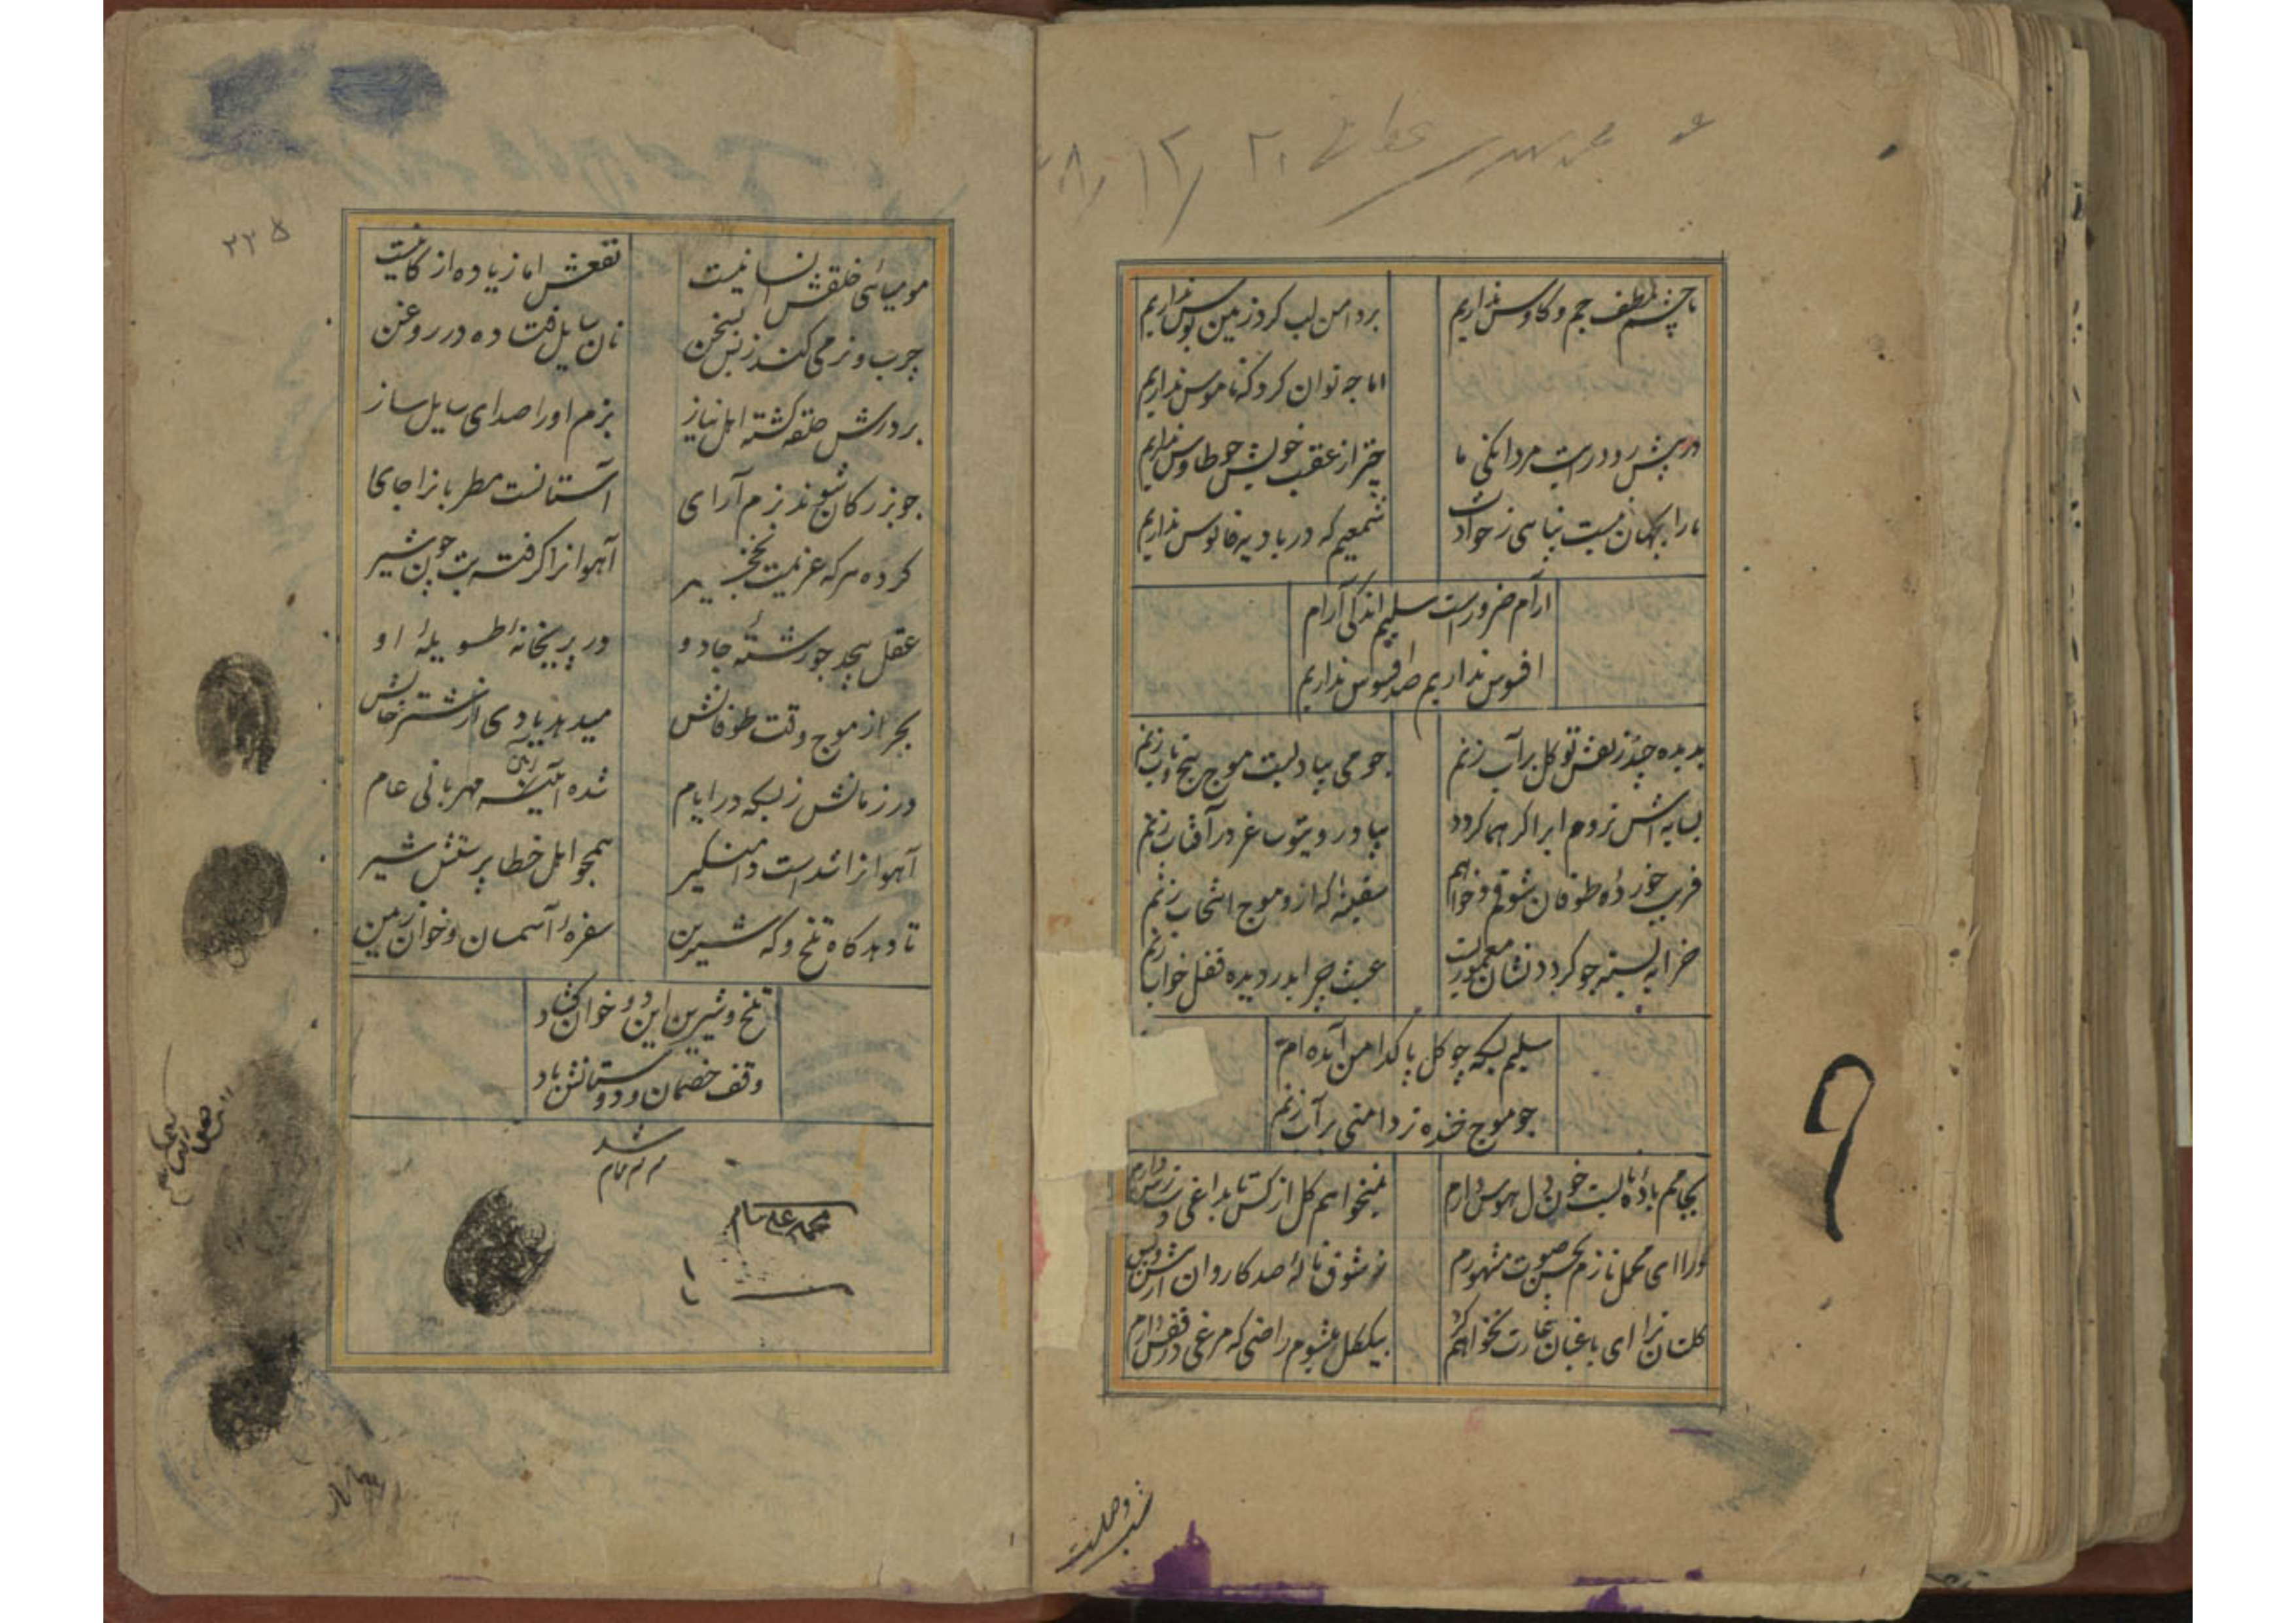 ما چشم لطف جم و کاوس نداریم
بر دامن لب کرد زمین بوس نداریم
اما چه توان کرد که ناموس نداریم
در پیش رو دراست مردانکی ما
چتر از عقب خویش چو طاوس نداریم
ما را بجهان نیست پناهی ز حوادث
شمعیم که در بادیه فانوس نداریم
آرام ضرورست سلیم اندکی آرام
افسوس نداریم صد افسوس نداریم
بدیده چند ز نقش تو کل بر آب زنم
چو می بیاد لبت موج پیچ و تاب زنم
بسایه اش نروم ابر اکر هما کردد
بیاد روی تو ساغر در آفتاب زنم
فریب خورده طوفان شوقم و خواهم
سفینه که ازو موج انتخاب زنم
خرابه بسته چو کردد نشان معموریست
عبث چرا بدر دیده قفل خواب زنم
سلیم بسکه چو کل پاکدامن آمده ام
چو موج خنده تر دامنی بر آب زنم
بجامم باده نابست خون دل هوس دارم
نمیخواهم کل از کس تا بداغی دست رس دارم
درای محمل نازم بحسن صوت مشهورم
ز شوق ناله صد کاروان از پیش و پس دارم
کلستان ترا ای باغبان غارت نخواهم کرد
بیک کل میشوم راضی که مرغی در قفس دارم
شب وصلت
۲۲۵
مومیائی خلقش انسانیست
نقعش اما زیاده از کانیست
چرب و نرمی کند ز بس بسخن
نان سایل فتاده در روغن
بر درش حلقه کشته اهل نیاز
بزم او را صدای سایل ساز
چو بزرکان شوند بزم آرای
آستانست مطربانرا جای
کرده هر که عزیمت نخجیر
آهوانرا کرفته بت چون شیر
عقل پیچد چو رشته جادو
در پریخانه طویله او
بحر از موج وقت طوفانش
میدهد یادی از شترخانش
در زمانش ز بسکه در ایام
شده آئین مهربانی عام
آهوانرا شدست دامنکیر
همچو اهل خطا پرستش شیر
تا دهد کاه تلخ و که شیرین
سفره آسمان و خوان زمین
تلخ و شیرین این دو خوان کشاد
وقف خصمان و دوستانش باد
تمام شد
محمد علی